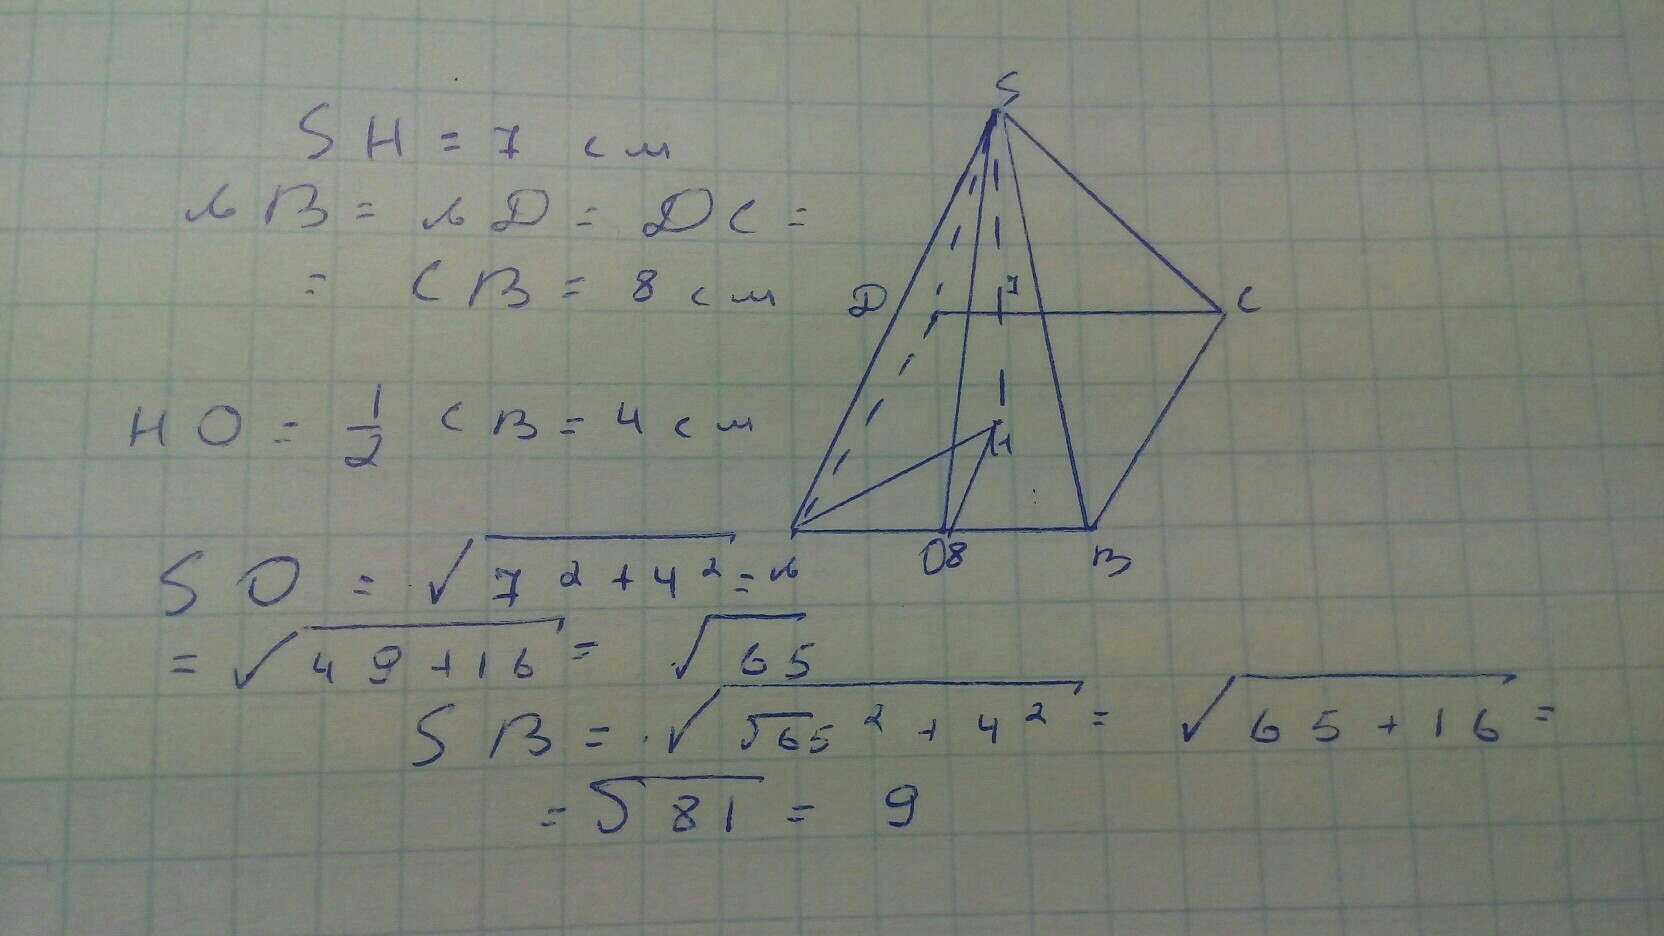 SH = 7 см
AB = AD = DC =
= CB = 8 см
HO = 1/2 CB = 4 см
SO = √(7² + 4²) =
= √(49 + 16) = √65
SB = √(√65² + 4²) = √(65 + 16) =
= √81 = 9
S
D
7
C
H
A
O
8
B